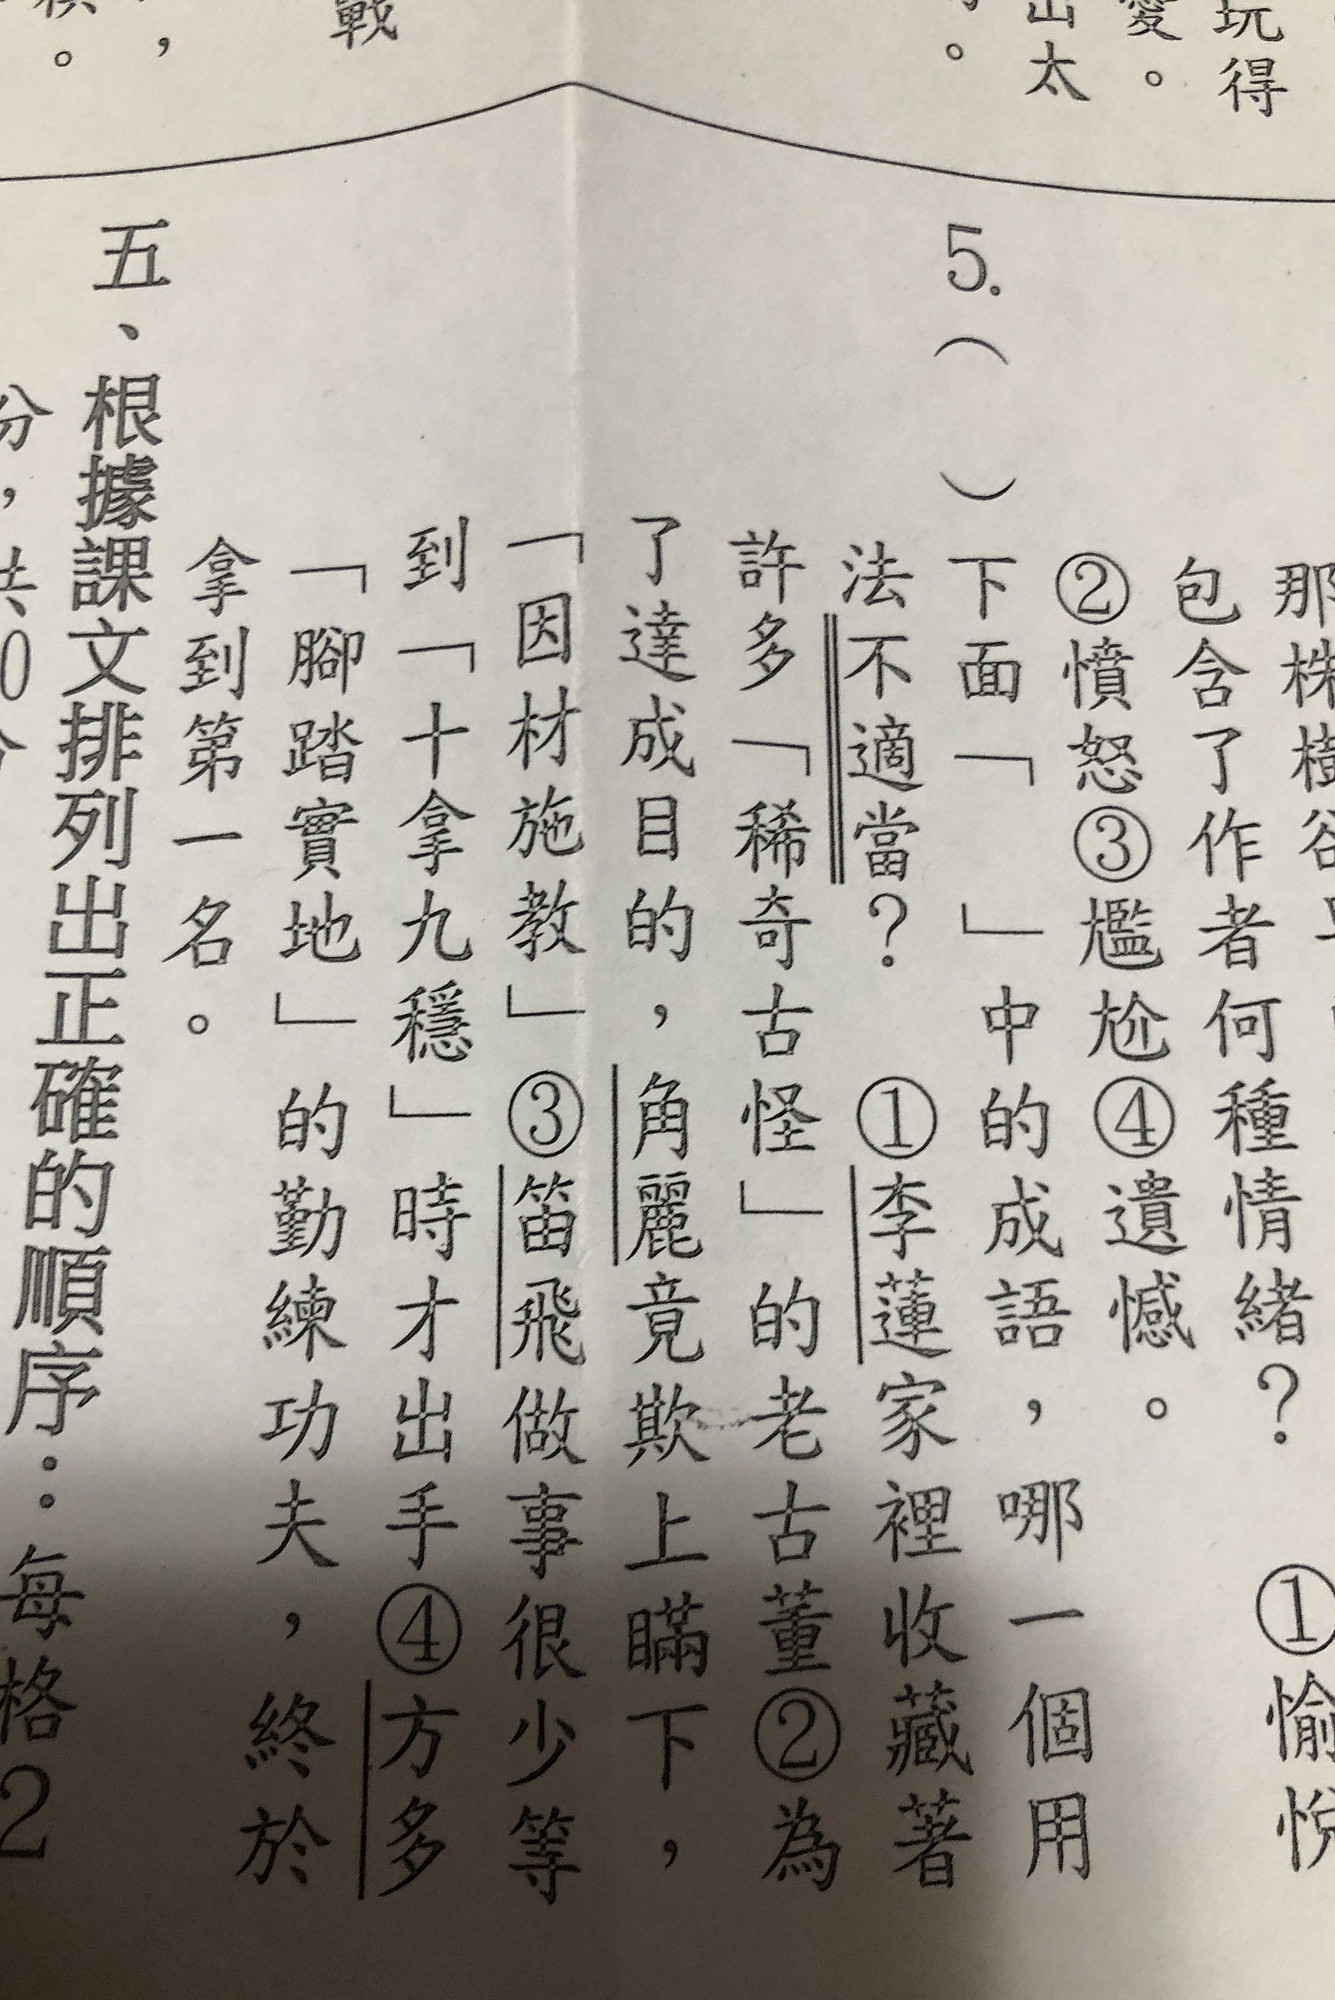 玩得
愛。
出太
。
戰
，
。
那株樹
包含了作者何種情緒？　①愉悅
②憤怒③尷尬④遺憾。
5.（　）下面「　」中的成語，哪一個用
法不適當？　①李蓮家裡收藏著
許多「稀奇古怪」的老古董②為
了達成目的，角麗竟欺上瞞下，
「因材施教」③笛飛做事很少等
到「十拿九穩」時才出手④方多
「腳踏實地」的勤練功夫，終於
拿到第一名。
五、根據課文排列出正確的順序：每格2
分，共